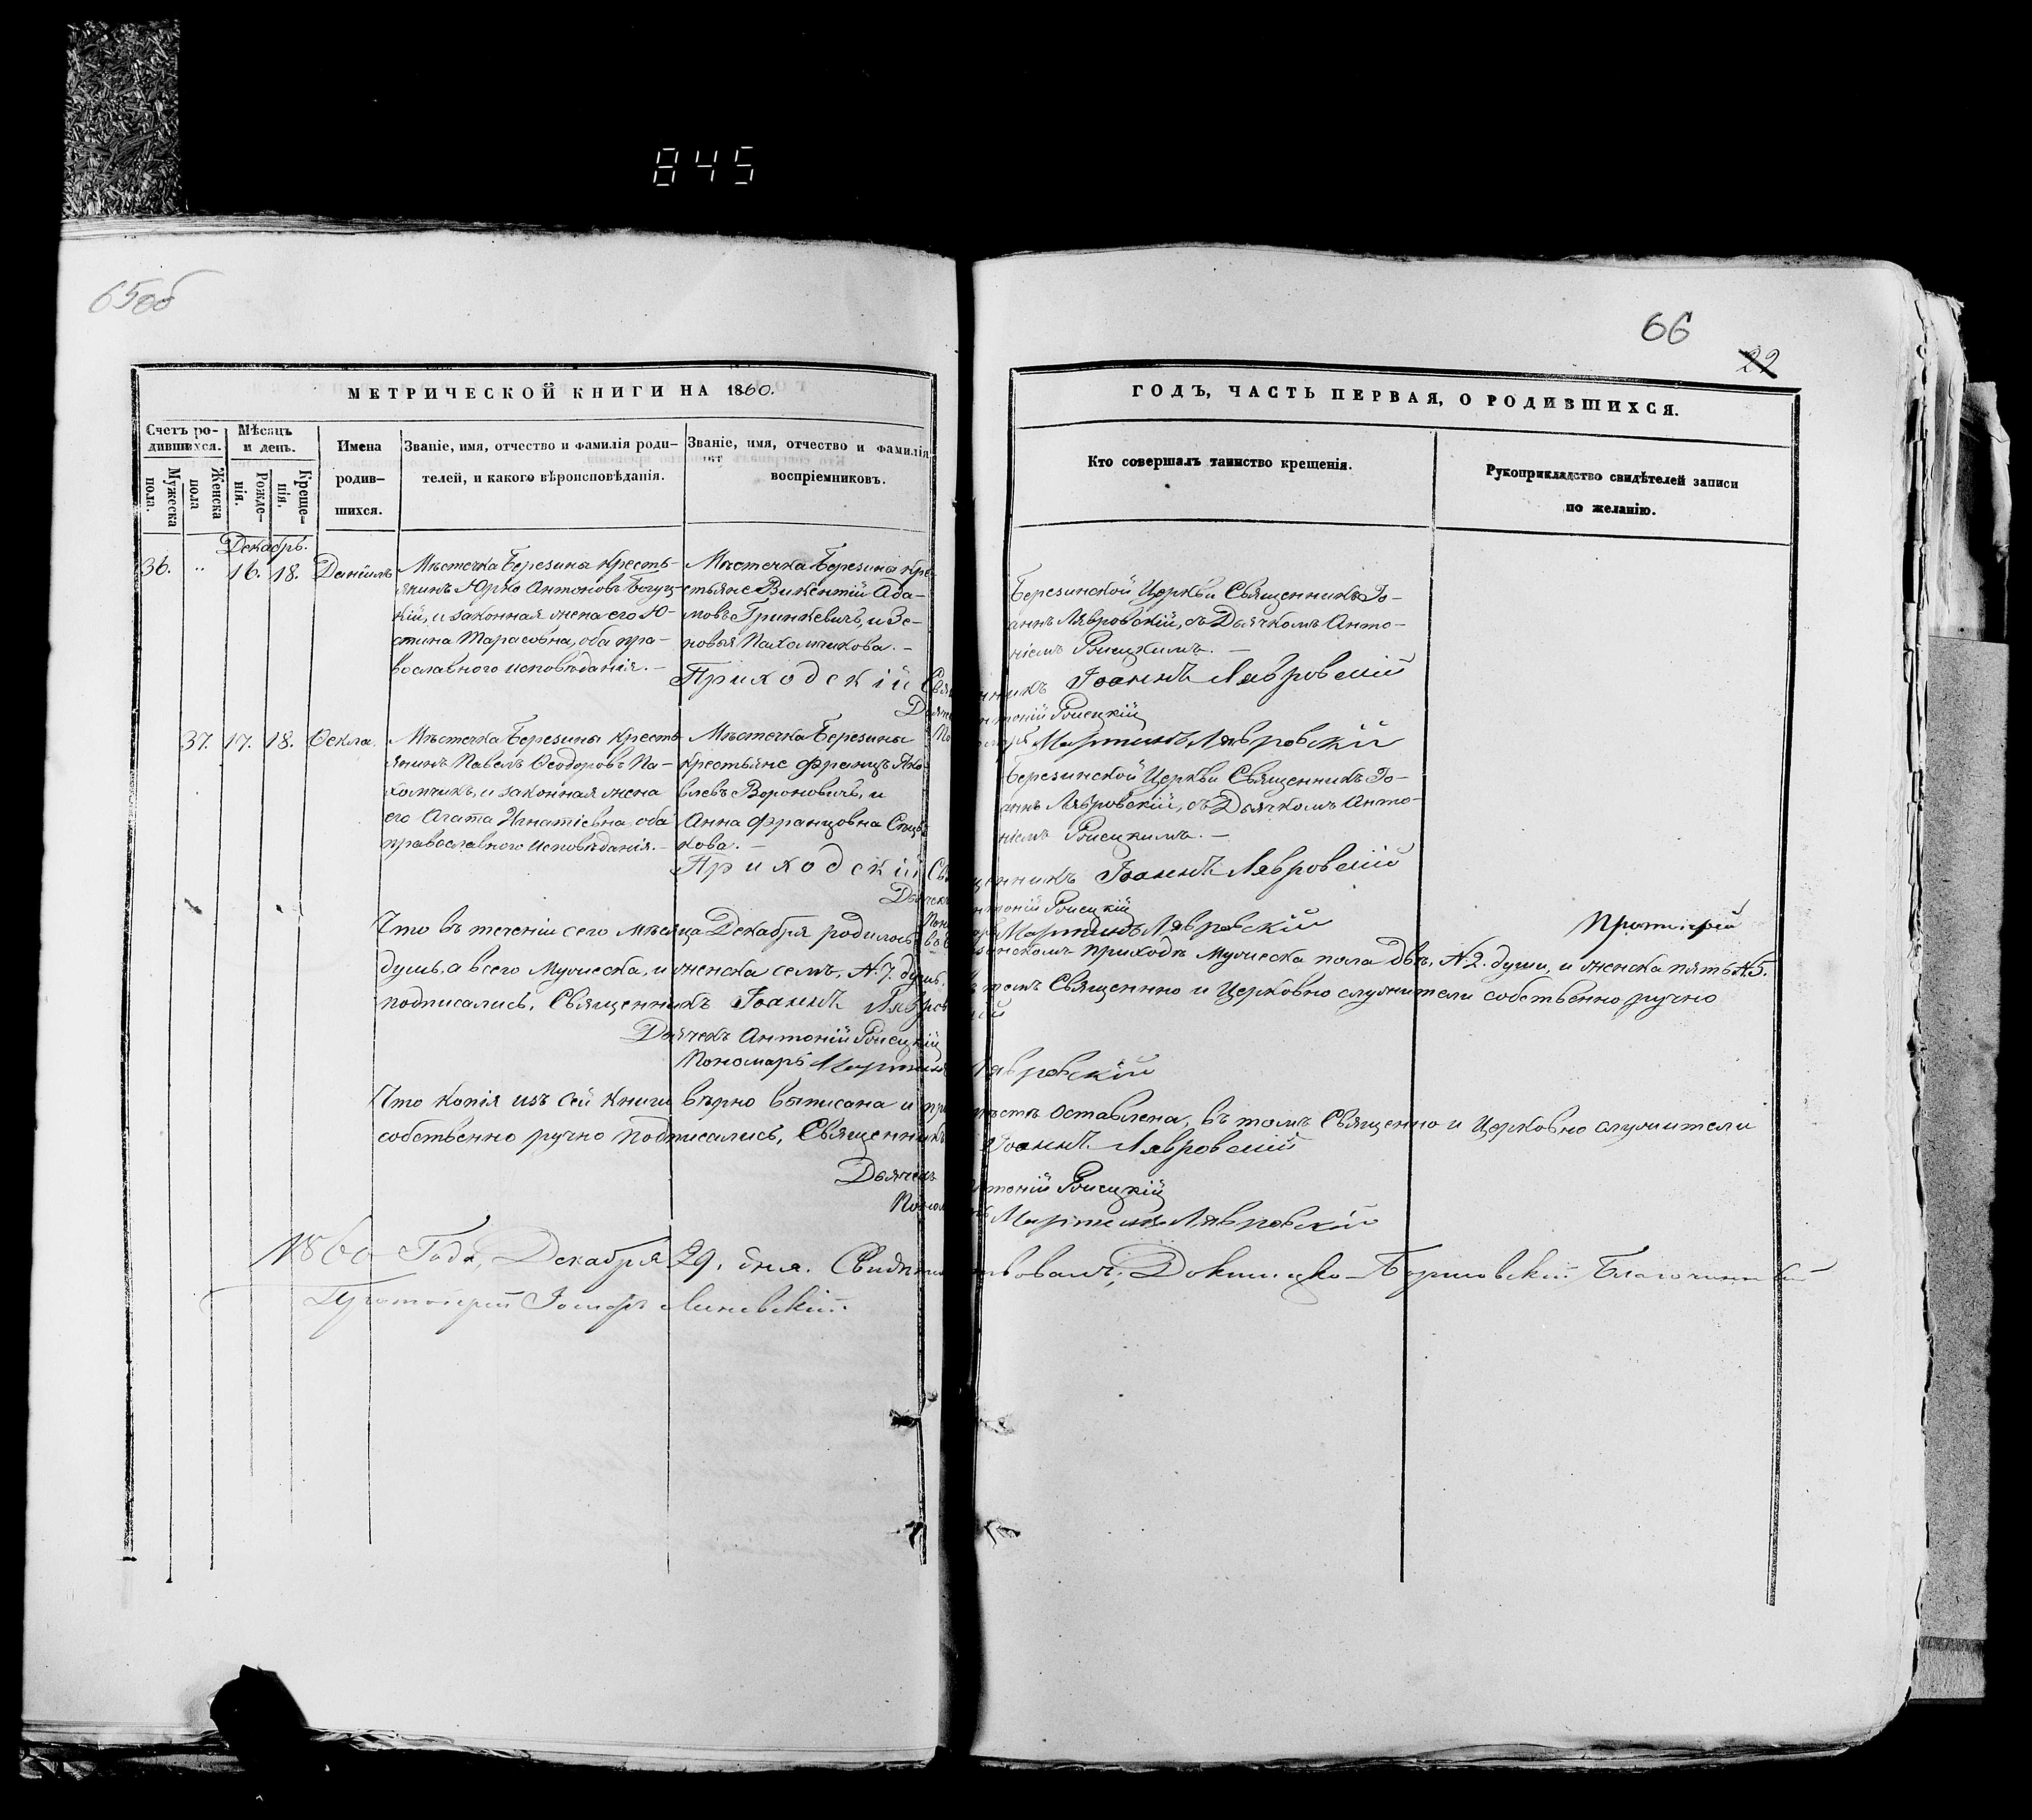 845
65об
66
22
МЕТРИЧЕСКОЙ КНИГИ НА 1860.
ГОДЪ, ЧАСТЬ ПЕРВАЯ, О РОДИВШИХСЯ.
Счетъ ро-
дившихся.
Мужеска
пола.
Женска
пола
Мѣсяцъ
и день.
Рожде-
нія.
Креще-
нія.
Имена
родив-
шихся.
Званіе, имя, отчество и фамилія роди-
телей, и какого вѣроисповѣданія.
Званіе, имя, отчество и фамилія
воспріемниковъ.
Кто совершалъ таинство крещенія.
Рукоприкладство свидѣтелей записи
по желанію.
Декабрь.
36. " 16. 18. Даніилъ
Мѣстечка Березины Кресть-
янинъ Юрко Антоновъ
кій, и законная жена его Ю-
стина Тарасовна, оба пра-
вославного исповѣданія. —
Мѣстечка Березины кре-
стьяне Викентій Ада-
мовъ Гринкевичъ, и Зе-
новья Пахомчикова. —
Березинской Церкви Священникъ Іо-
аннъ Лавровскій, съ Дьячкомъ Анто-
ніемъ —
Приходскій Священникъ Іоаннъ Лавровскій
Дьячекъ Антоній
Пономарь Мартинъ Лавровскій
37. 17. 18. Ѳекла.
Мѣстечка Березины Кресть-
янинъ Павелъ Ѳеодоровъ Па-
хомчикъ, и законная жена
его Агата Игнатіевна, оба
православного исповѣданія. —
Мѣстечка Березины
крестьяне Францъ Яко-
влевъ Вороновичъ, и
Анна Францовна
кова. —
Березинской Церкви Священникъ Іо-
аннъ Лавровскій, съ Дьячкомъ Анто-
ніемъ —
Приходскій Священникъ Іоаннъ Лавровскій
Дьячекъ Антоній
Пономарь Мартинъ Лавровскій
Протоіерей
Что въ теченіи сего мѣсяца Декабря родилось въ Березинскомъ приходѣ Мужеска пола двѣ, №2. души, и женска пять №5.
душъ, а всего Мужеска, и женска семь, №7. душъ, въ томъ Священно и Церковно служители собственно ручно
подписались, Священникъ Іоаннъ Лавровскій
Дьячекъ Антоній
Пономарь Мартинъ Лавровскій
Что копія изъ сей книги вѣрно выписана и при мѣстѣ оставлена, въ томъ Священно и Церковно служители
собственно ручно подписались, Священникъ Іоаннъ Лавровскій
Дьячекъ Антоній
Пономарь Мартинъ Лавровскій
1860 Года, Декабря 29. дня. Свидѣтельствовалъ, Докшицко-Борисовскій Благочинный
Протоіерей